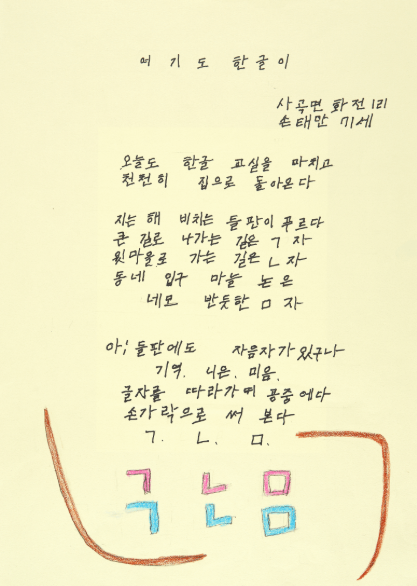 여기도 한글이
사곡면 화전1리
손태만 71세
오늘도 한글 교실을 마치고
천천히 집으로 돌아온다
지는 해 비치는 들판이 푸르다
큰 길로 나가는 길은 ㄱ자
윗마을로 가는 길은 ㄴ자
동네 입구 마늘 논은
네모 반듯한 ㅁ자
아, 들판에도 자음자가 있구나
기역. 니은. 미음.
글자를 따라가며 공중에다
손가락으로 써 본다
ㄱ. ㄴ. ㅁ.
ㄱ ㄴ ㅁ
ㄱ ㄴ ㅁ